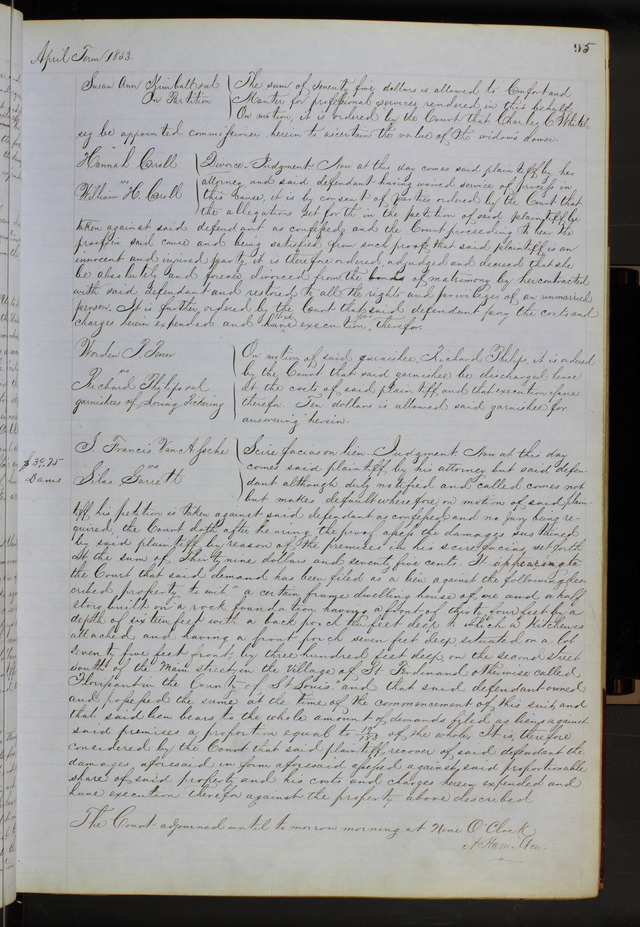 95
April Term 1853.
Susan Ann Kimball et al
On Partition
The sum of seventy five dollars is allowed to Comfort and
Manter for professional services rendered in this behalf
On motion, it is ordered by the Court that Charles C. Whittel-
sey be appointed commissioner herein to ascertain the value of the widow's dower.
Hannah Carroll
vs
William H. Carroll
Divorce - Judgment. Now at this day comes said plaintiff by her
attorney and said defendant having waived service of process in
this cause, it is by consent of parties ordered by the Court that
the allegations set forth in the petition of said plaintiff be
taken against said defendant as confessed and the Court proceeding to hear the
proof in said cause and being satisfied from such proof that said plaintiff is an
innocent and injured party it is therefore ordered adjudged and decreed that she
be absolutely and forever divorced from the bonds of matrimony by her contracted
with said defendant and restored to all the rights and privileges of an unmarried
person. It is further ordered by the Court that said defendant pay the costs and
charges herein expended and have execution therefor.
Worden P.
vs
Richard Philips et al
garnishees of Loring Pickering
On motion of said garnishee, Richard Philips, it is ordered
by the Court that said garnishee be discharged hence
at the costs of said plaintiff, and that execution issue
therefor. Ten dollars is allowed said garnishee for
answering herein.
$39.75
Dams
J. Francis Van Assche
vs
Silas Garrett
Scire facias on lien. Judgment. Now at this day
comes said plaintiff by his attorney but said defen-
dant although duly notified and called comes not
but makes default wherefore on motion of said plain-
tiff his petition is taken against said defendant as confessed and no jury being re-
quired, the Court doth after hearing the proof assess the damages sustained
by said plaintiff by reason of the premises in his scire facias set forth
at the sum of Thirty nine dollars and seventy five cents. It appearing to
the Court that said demand has been filed as a lien against the following des-
cribed property to wit "a certain frame dwelling house of one and a half
story built on a rock foundation having a front of thirty four feet by a
depth of sixteen feet with a back porch ten feet deep to which a Kitchen is
attached and having a front porch seven feet deep situated on a lot
seventy five feet front by three hundred feet deep on the second street
south of the Main street in the village of St. Ferdinand otherwise called
Florissant in the County of St Louis, and that said defendant owned
and possessed the same at the time of the commencement of this suit and
that said lien bears to the whole amount of demands filed as liens against
said premises a proportion equal to of the whole It is, therefore
considered by the Court that said plaintiff recover of said defendant the
damages aforesaid in form aforesaid assessed against said proportionable
share of said property and his costs and charges herein expended and
have execution therefor against the property above described
The Court adjourned until to morrow morning at Nine O'Clock
A Hamilton.